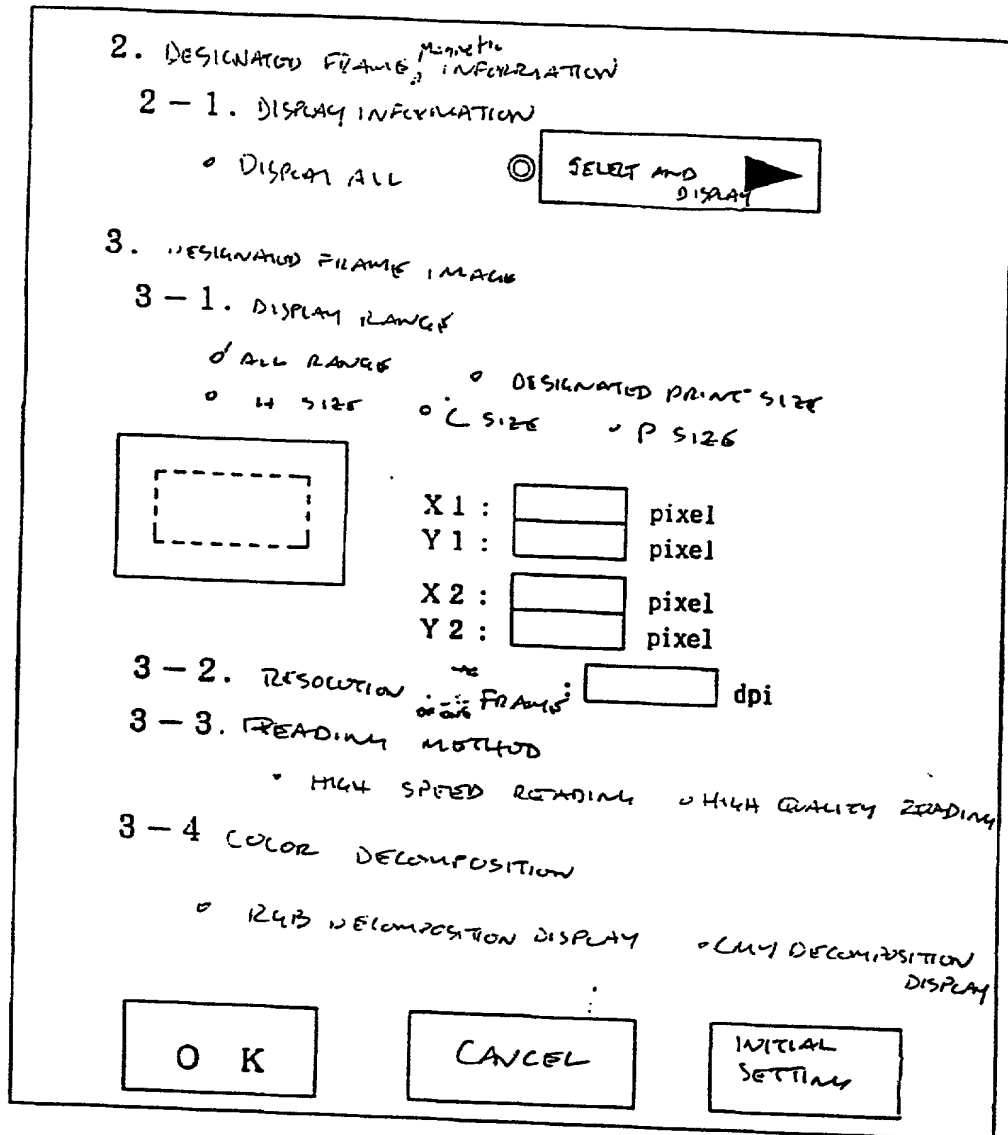 2. DESIGNATED FRAME, Magnetic INFORMATION
2-1. DISPLAY INFORMATION
DISPLAY ALL
SELECT AND
DISPLAY
3. DESIGNATED FRAME IMAGE
3-1. DISPLAY RANGE
ALL RANGE DESIGNATED PRINT SIZE
H SIZE C SIZE P SIZE
X1: pixel
Y1: pixel
X2: pixel
Y2: pixel
3-2. RESOLUTION OF ONE FRAME: dpi
3-3. READING METHOD
HIGH SPEED READING HIGH QUALITY READING
3-4 COLOR DECOMPOSITION
RGB DECOMPOSITION DISPLAY CMY DECOMPOSITION
DISPLAY
OK CANCEL INITIAL
SETTING